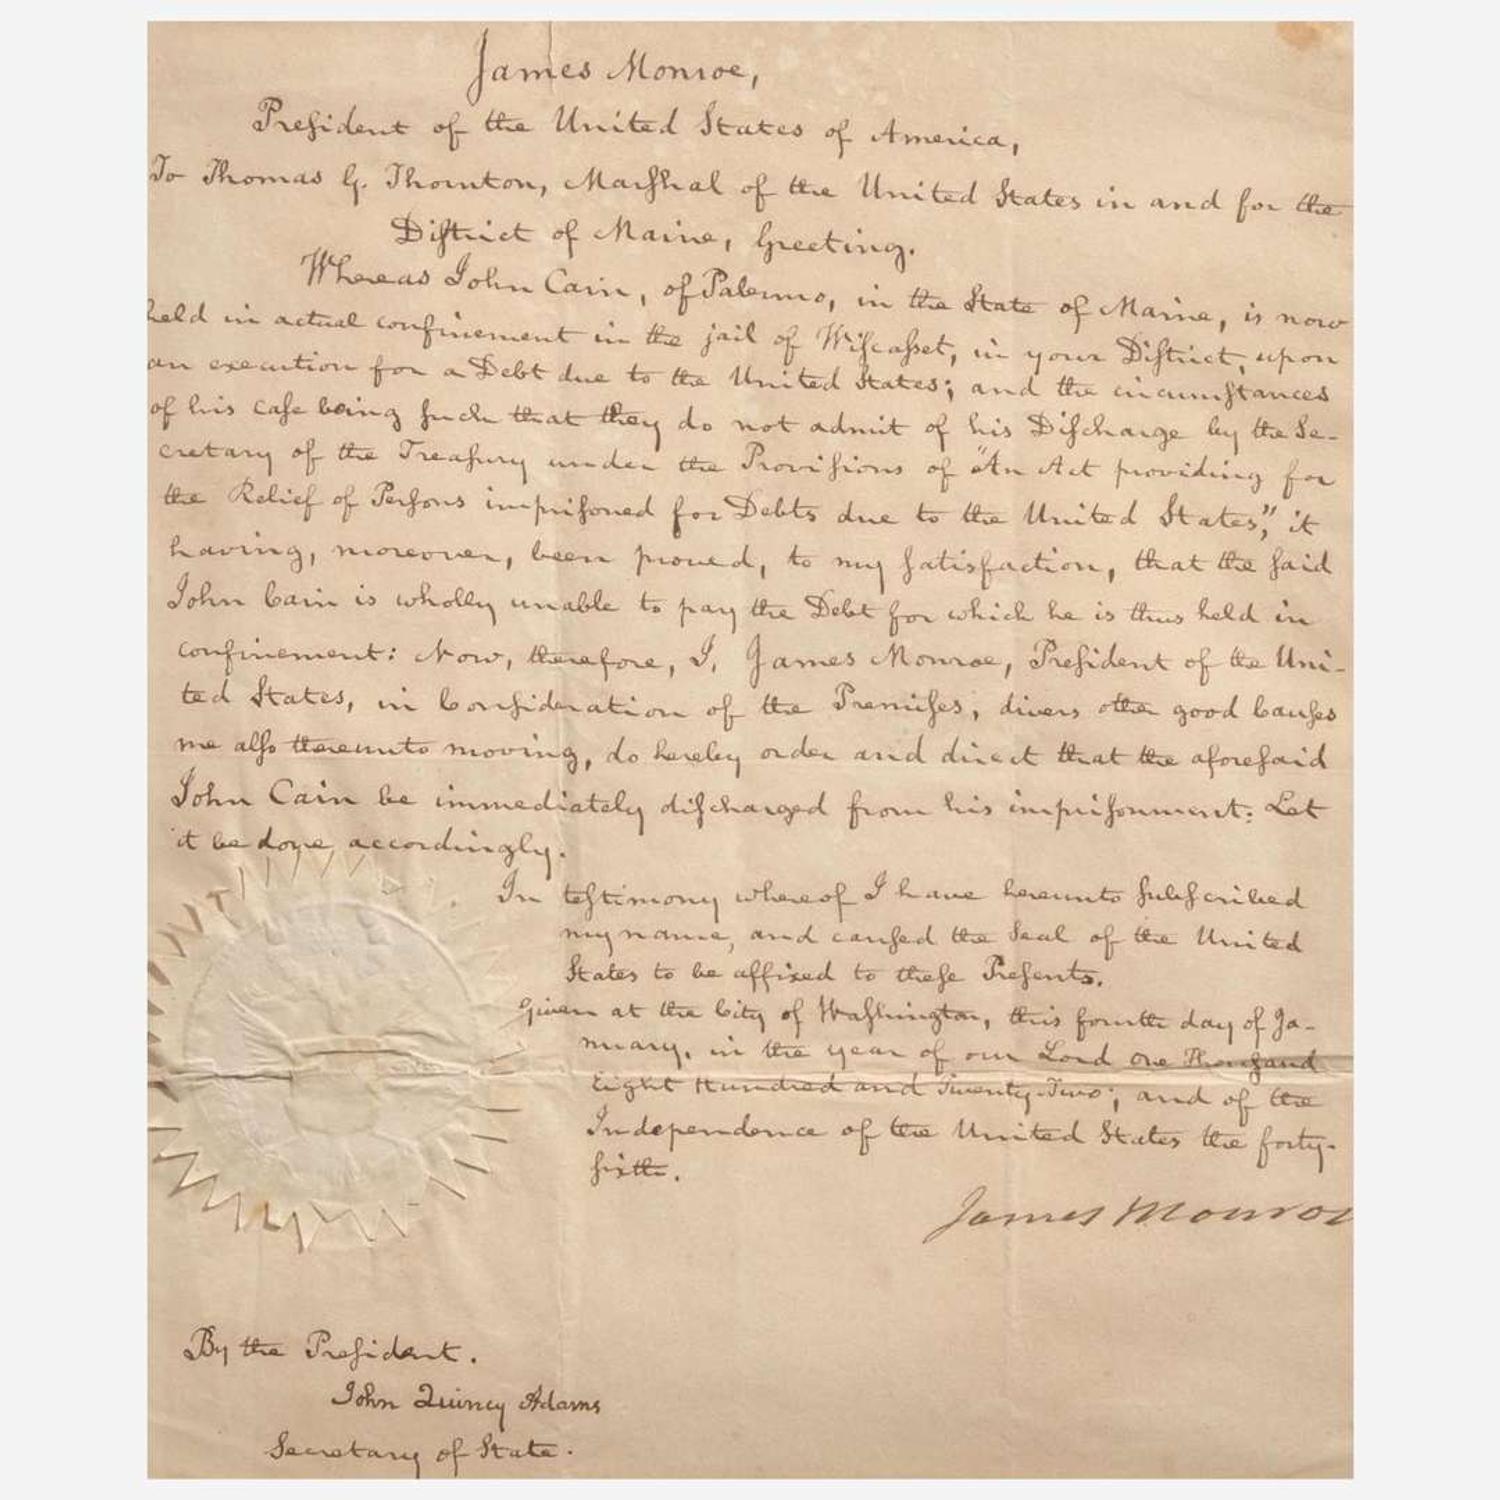 James Monroe,
President of the United States of America,
To Thomas G. Thornton, Marshal of the United States in and for the
District of Maine, Greeting.
Whereas John Cain, of Palermo, in the State of Maine, is now
held in actual confinement in the jail of Wiscasset, in your District, upon
an execution for a Debt due to the United States; and the circumstances
of his case being such that they do not admit of his Discharge by the Se-
cretary of the Treasury under the Provisions of "An Act providing for
the Relief of Persons imprisoned for Debts due to the United States," it
having, moreover, been proved, to my satisfaction, that the said
John Cain is wholly unable to pay the Debt for which he is thus held in
confinement: Now, therefore, I, James Monroe, President of the Uni-
ted States, in Consideration of the Premises, divers other good Causes
me also thereunto moving, do hereby order and direct that the aforesaid
John Cain be immediately discharged from his imprisonment: Let
it be done accordingly.
In testimony whereof I have hereunto subscribed
my name, and caused the Seal of the United
States to be affixed to these Presents.
Given at the City of Washington, this fourth day of Ja-
nuary, in the year of our Lord one Thousand
Eight Hundred and Twenty-Two; and of the
Independence of the United States the forty-
sixth.
James Monroe
By the President.
John Quincy Adams
Secretary of State.